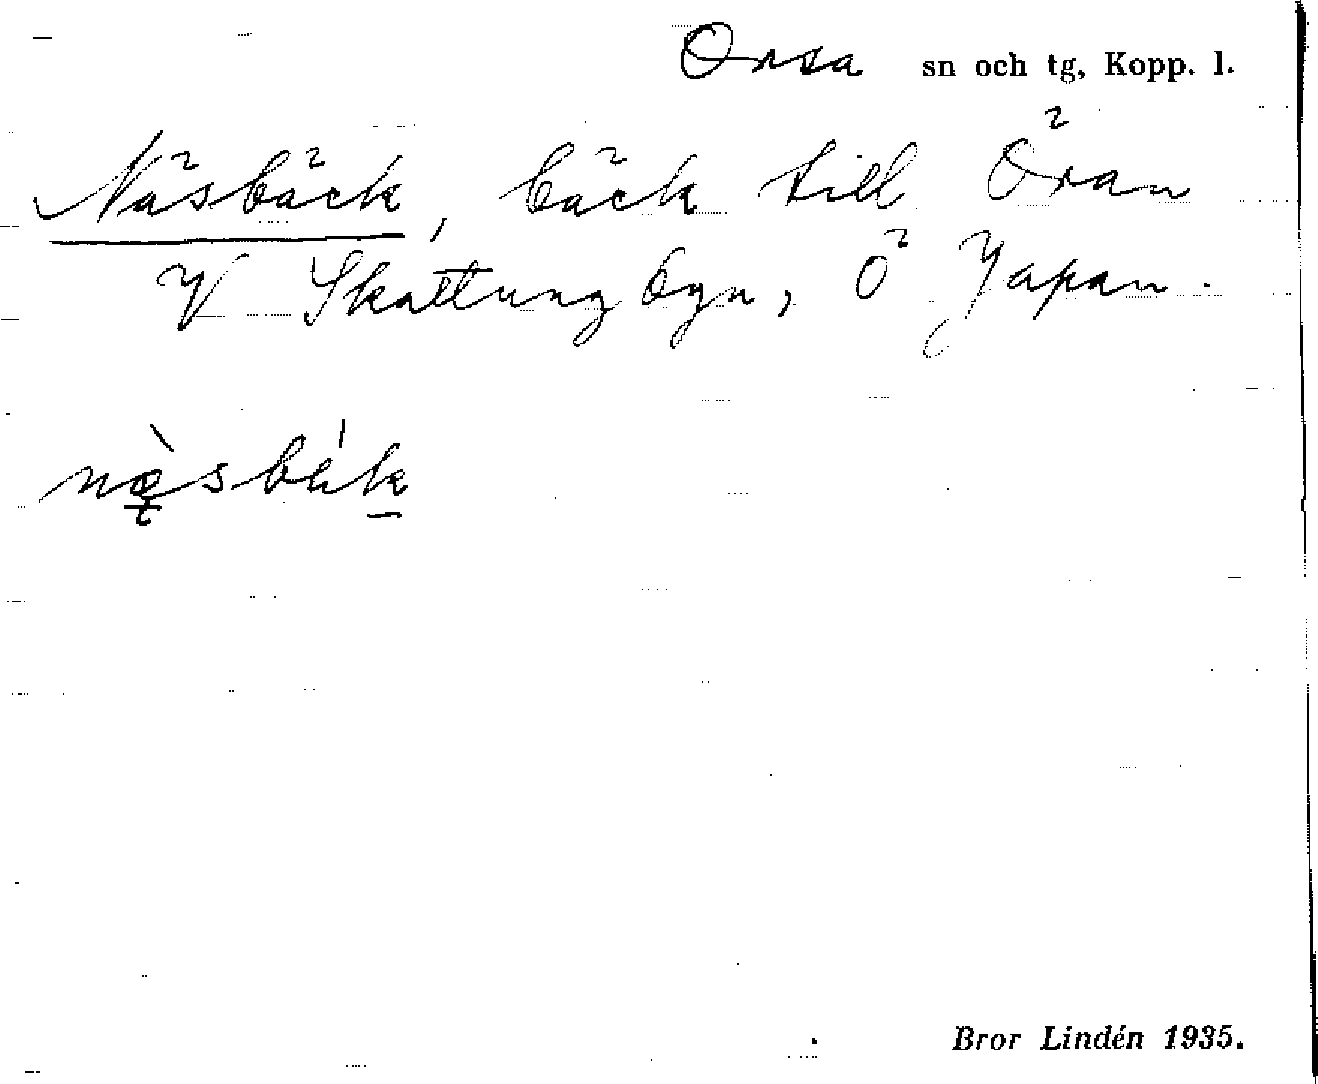 Orsa sn och tg, Kopp. l.
Näsbäck, bäck till Öran
V Skattungbyn, Ö Japan.
næ̀sbák
Bror Lindén 1935.